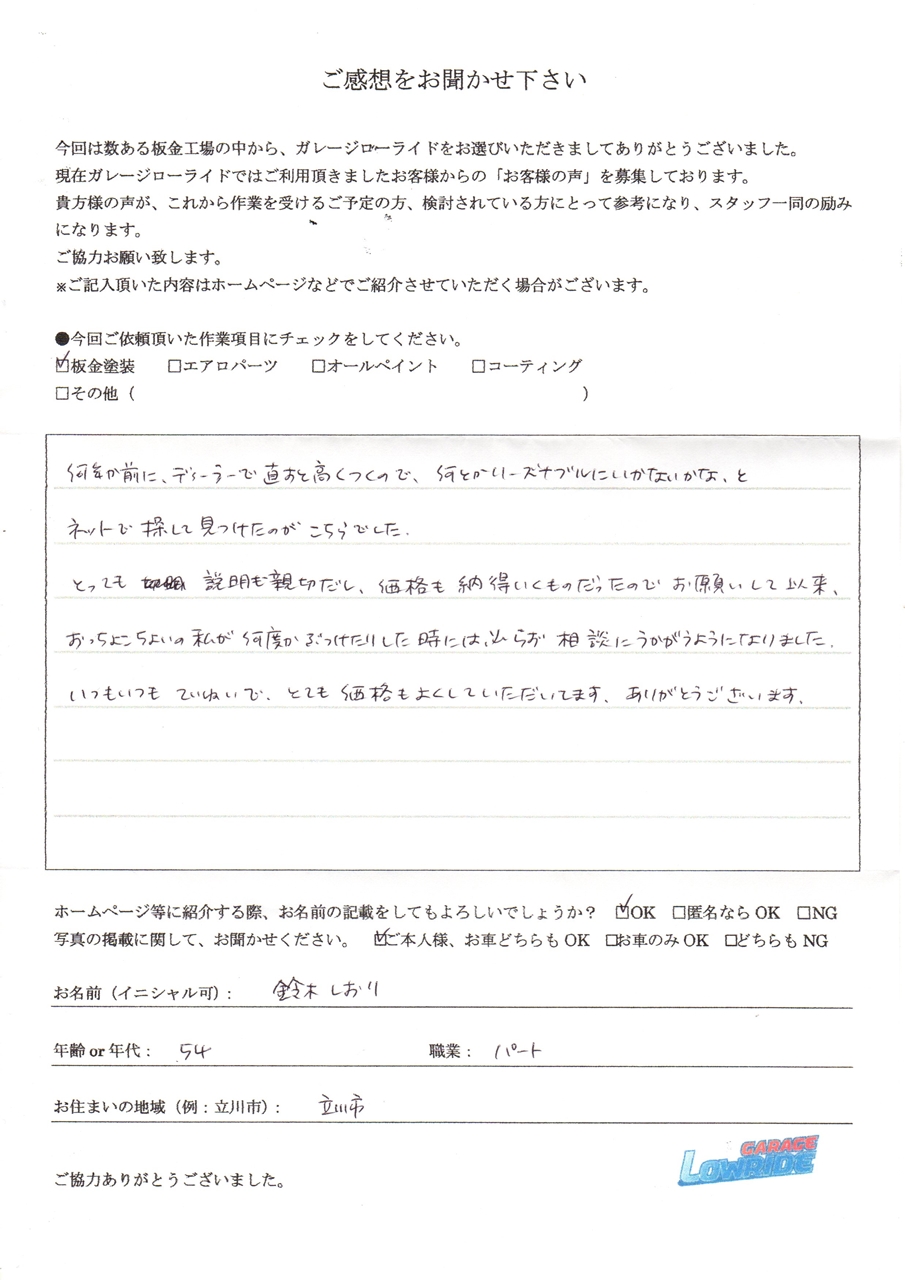 ご感想をお聞かせ下さい
今回は数ある板金工場の中から、ガレージローライドをお選びいただきましてありがとうございました。
現在ガレージローライドではご利用頂きましたお客様からの「お客様の声」を募集しております。
貴方様の声が、これから作業を受けるご予定の方、検討されている方にとって参考になり、スタッフ一同の励み
になります。
ご協力お願い致します。
※ご記入頂いた内容はホームページなどでご紹介させていただく場合がございます。
●今回ご依頼頂いた作業項目にチェックをしてください。
☑板金塗装 □エアロパーツ □オールペイント □コーティング
□その他（ ）
何年か前に、ディーラーで直すと高くつくので、何とかリーズナブルにいかないかな、と
ネットで探して見つけたのがこちらでした.
とっても 説明も親切だし、価格も納得いくものだったのでお願いして以来、
おっちょこちょいの私が何度かぶつけたりした時には、必らず相談にうかがうようになりました.
いつもいつもていねいで、とても価格もよくしていただいてます、ありがとうございます.
ホームページ等に紹介する際、お名前の記載をしてもよろしいでしょうか？ ☑OK □匿名なら OK □NG
写真の掲載に関して、お聞かせください。 ☑ご本人様、お車どちらも OK □お車のみ OK □どちらも NG
お名前（イニシャル可）： 鈴木しおり
年齢 or 年代： 54 職業： パート
お住まいの地域（例：立川市）： 立川市
GARAGE
LOWRIDE
ご協力ありがとうございました。